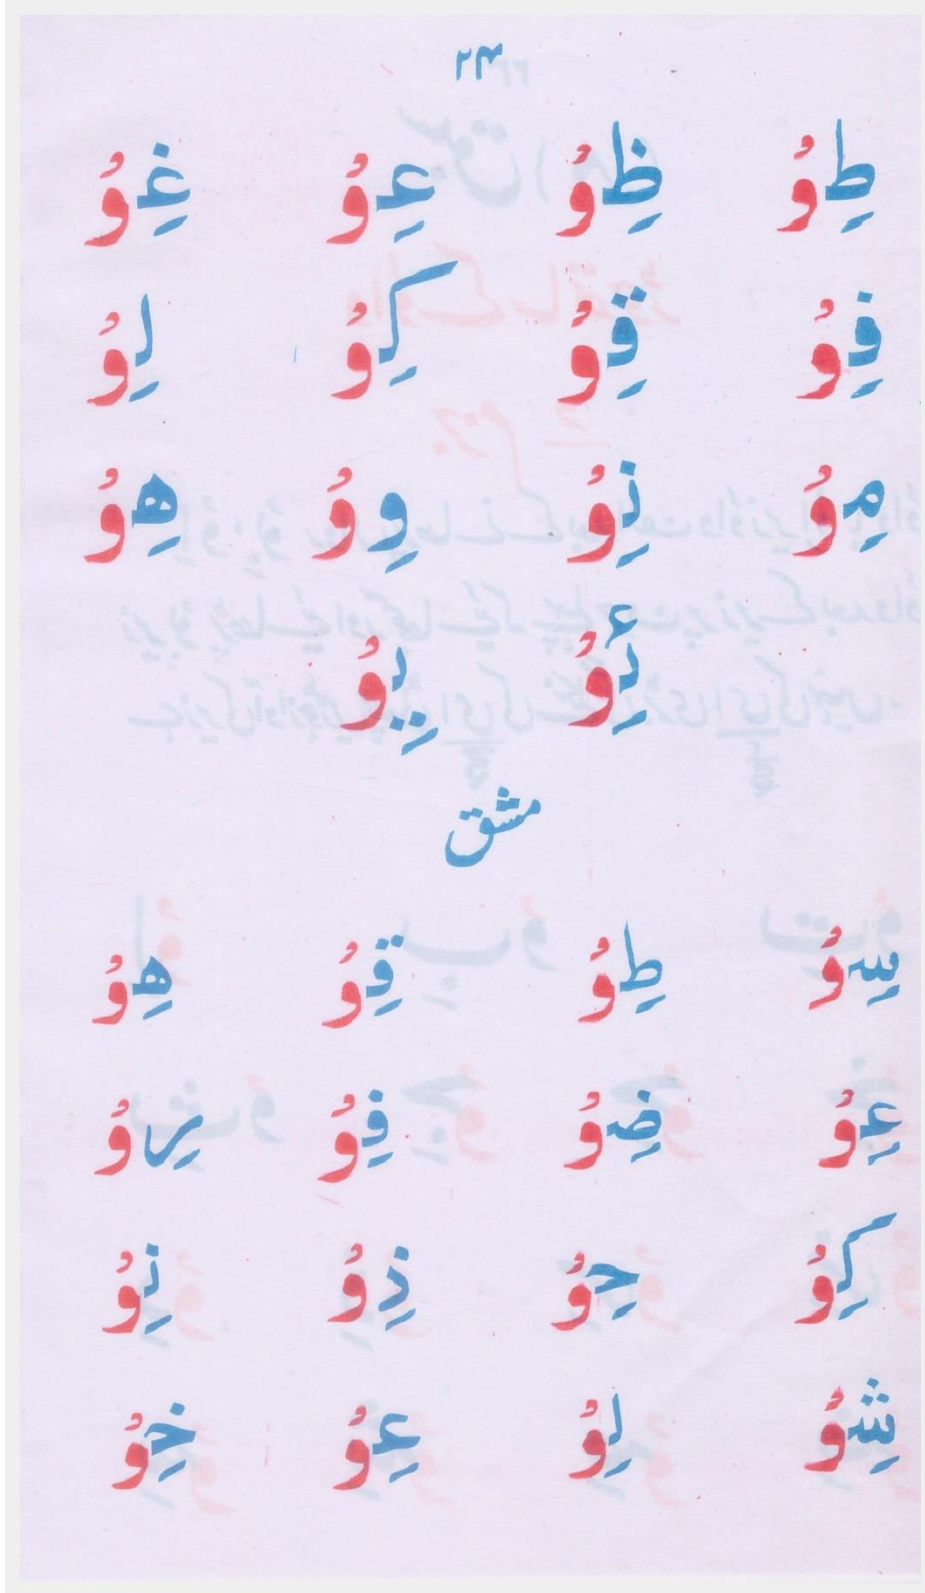 ۲۴
طِوُ ظِوُ عِوُ غِوُ
فِوُ قِوُ کِوُ لِوُ
مِوُ نِوُ وِوُ هِوُ
ئِوُ یِوُ
مشق
سِوُ طِوُ قِوُ هِوُ
عِوُ ضِوُ فِوُ رِوُ
کِوُ حِوُ ذِوُ نِوُ
شِوُ لِوُ عِوُ خِوُ